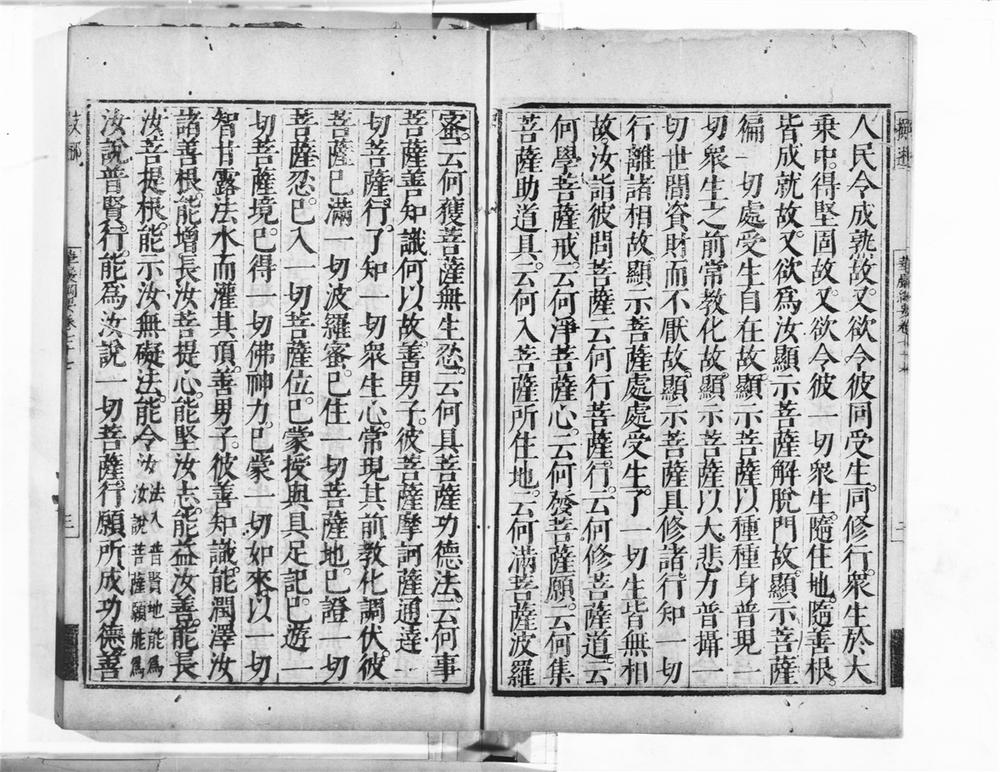 人民令成熟故又欲令彼同受生同修行衆生於大
乘中得堅固故又欲令彼一切衆生隨住地隨善根
皆成就故又欲爲汝顯示菩薩解脫門故顯示菩薩
徧一切處受生自在故顯示菩薩以種種身普現一
切衆生之前常教化故顯示菩薩以大悲力普攝一
切世間資財而不厭故顯示菩薩具修諸行知一切
行離諸相故顯示菩薩處處受生了一切生皆無相
故汝詣彼問菩薩云何行菩薩行云何修菩薩道云
何學菩薩戒云何淨菩薩心云何發菩薩願云何集
菩薩助道具云何入菩薩所住地云何滿菩薩波羅
蜜云何獲菩薩無生忍云何具菩薩功德法云何事
菩薩善知識何以故善男子彼菩薩摩訶薩通達一
切菩薩行了知一切衆生心常現其前教化調伏彼
菩薩已滿一切波羅蜜已住一切菩薩地已證一切
菩薩忍已入一切菩薩位已蒙授與具足記已遊一
切菩薩境已得一切佛神力已蒙一切如來以一切
智甘露法水而灌其頂善男子彼善知識能潤澤汝
諸善根能增長汝菩提心能堅汝志能益汝善能長
汝菩提根能示汝無礙法能令汝入普賢地能爲
汝說菩薩願能爲
汝說普賢行能爲汝說一切菩薩行願所成功德善